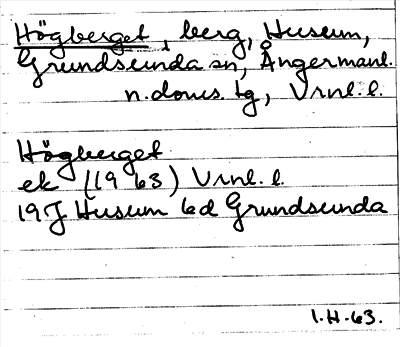 Högberget, berg, Husum,
Grundsunda sn, Ångermanl.
n. doms. tg, Vrnl. l.
Högberget
ek (1963) Vrnl. l.
19J Husum bd Grundsunda
I.H-63.